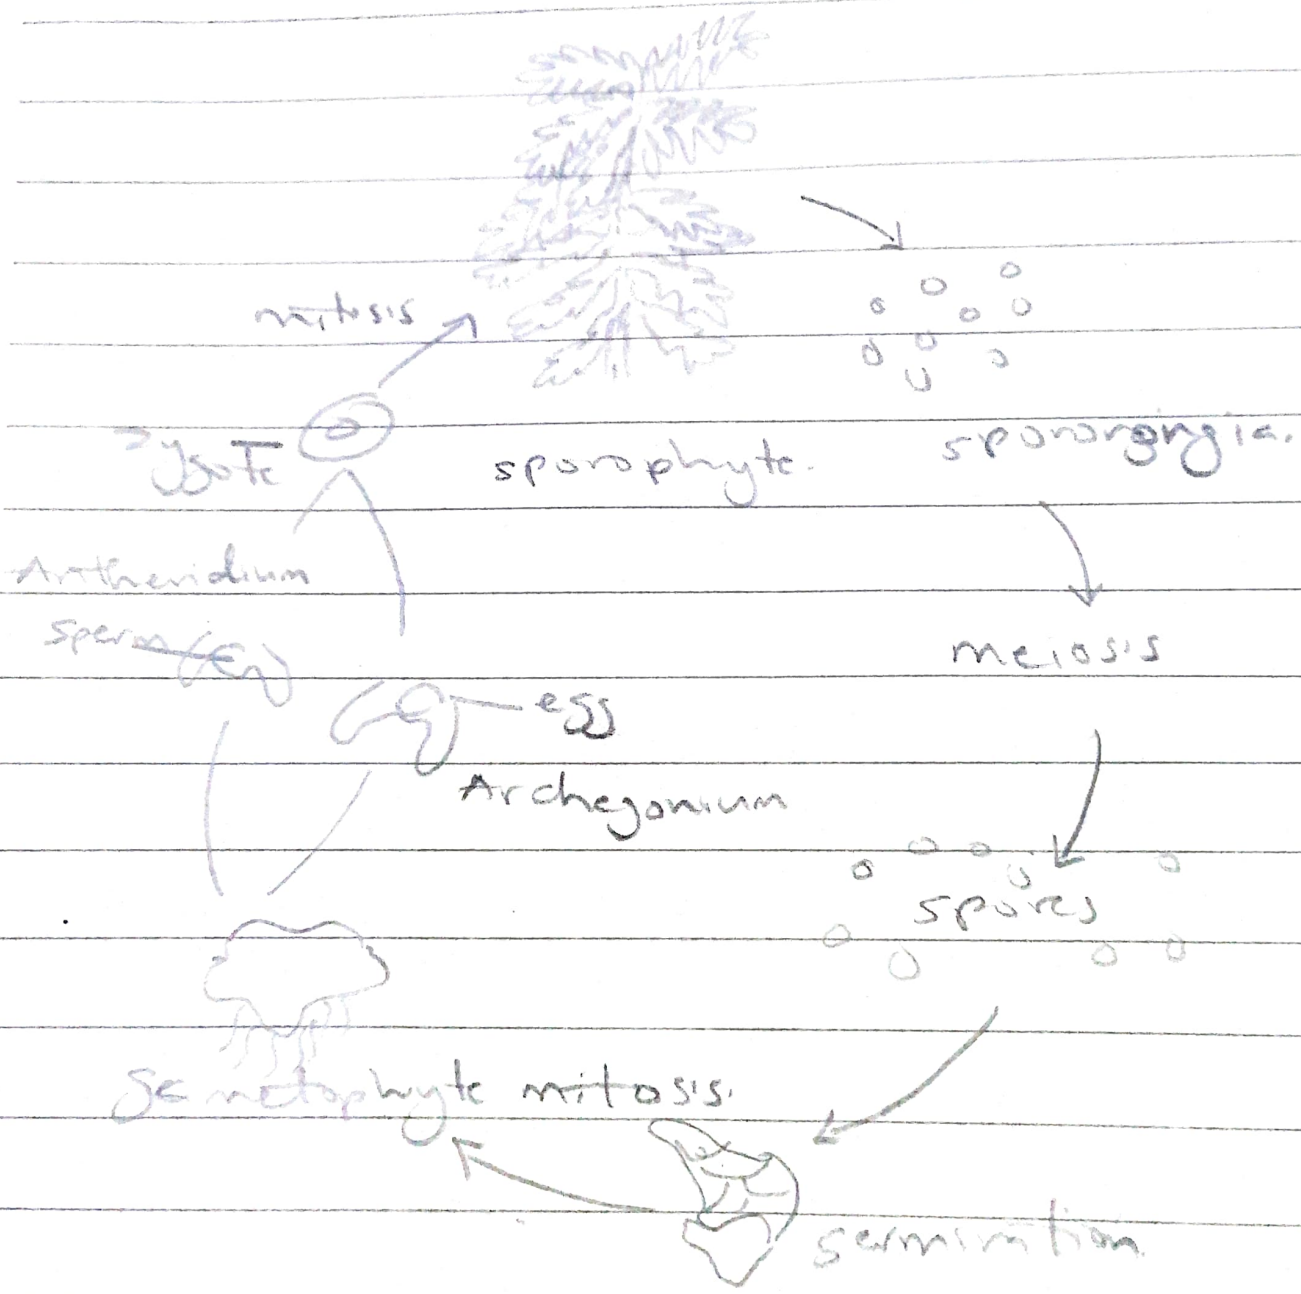 mitosis
zygote
sporophyte.
sporongia.
Antheridium
sperm
meiosis
egg
Archegonium
spores
gametophyte mitosis.
germination.